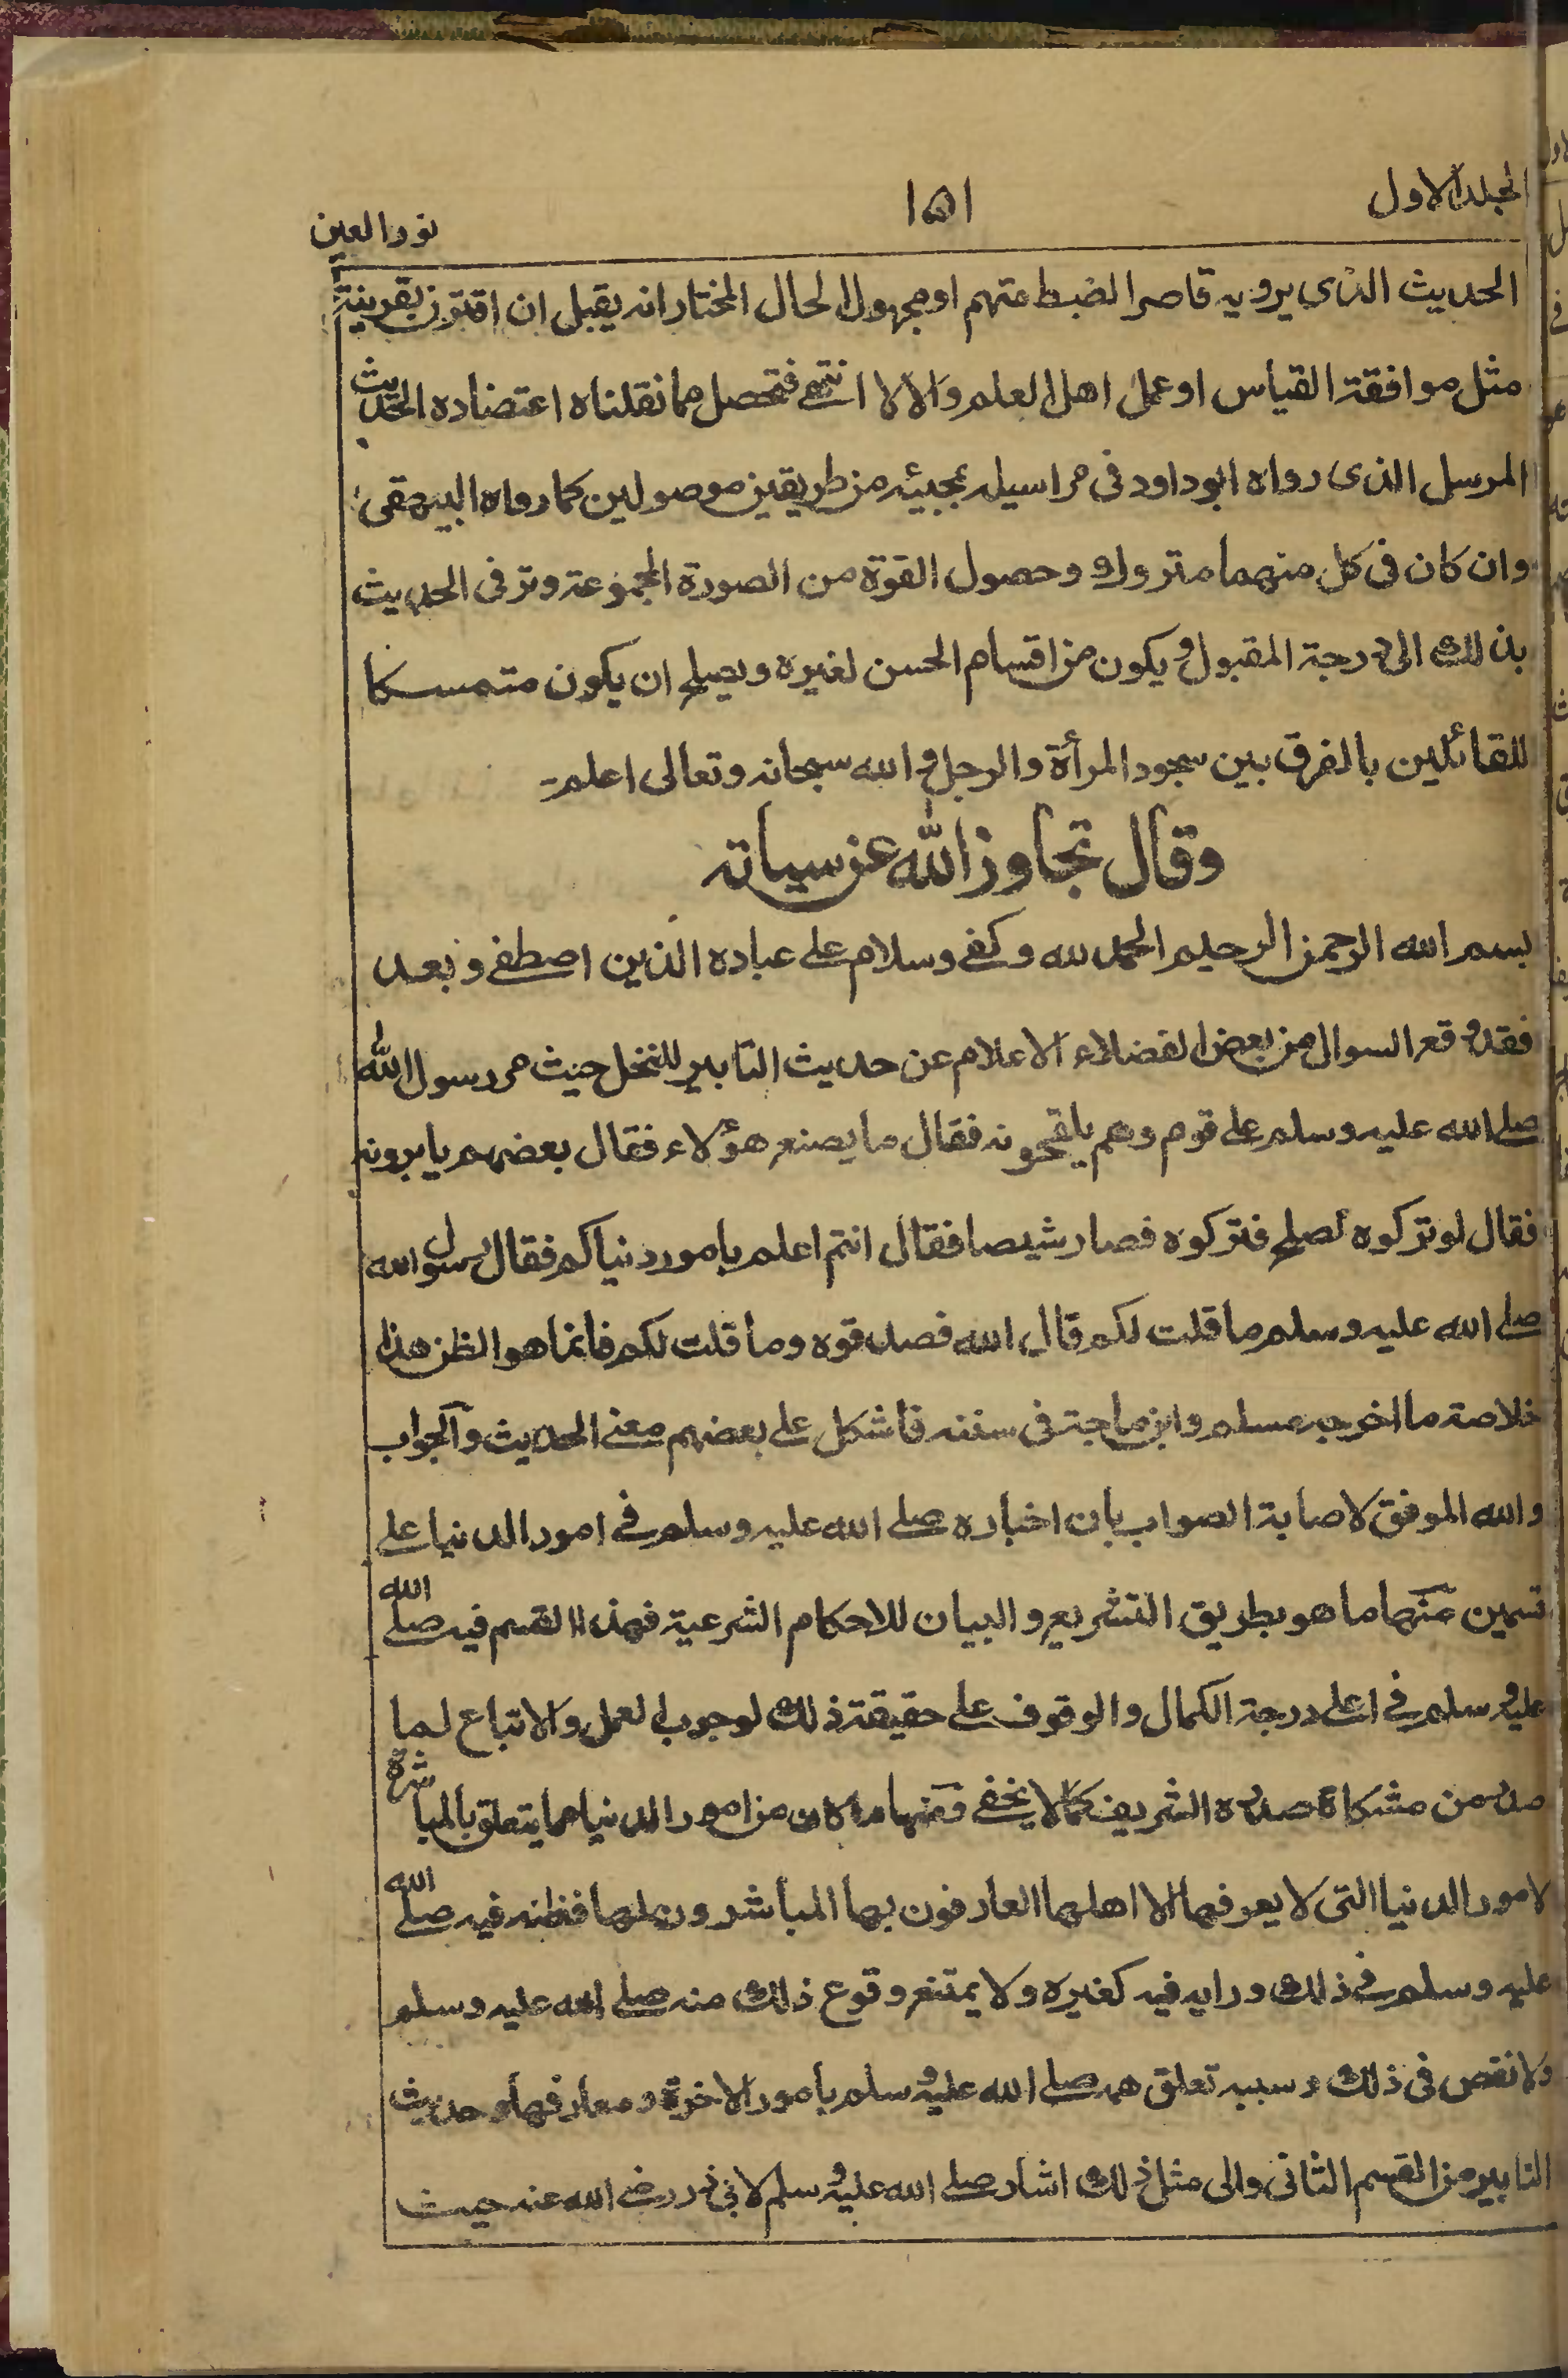 المجلد الاول
١٥١
نور العين
الحديث الذى يرويه قاصر الضبط متهم او مجهول الحال المختار انه يقبل ان اقترن بقرينة
مثل موافقة القياس او عمل اهل العلم والا لا انتهى فتحصل مما نقلناه اعتضاده الحديث
المرسل الذى رواه ابو داود فى مراسيله بمجيئه من طريقين موصولين كما رواه البيهقى
وان كان فى كل منهما متروك وحصول القوة من الصورة المجموعة وترقى الحديث
بذلك الى درجة المقبول ويكون من اقسام الحسن لغيره ويصلح ان يكون متمسكا
للقائلين بالفرق بين سجود المرأة والرجل والله سبحانه وتعالى اعلم
وقال تجاوز الله عن سياته
بسم الله الرحمن الرحيم الحمد لله وكفى وسلام على عباده الذين اصطفى وبعد
فقد وقع السوال من بعض الفضلاء الاعلام عن حديث التابير للنخل حيث مر رسول الله
صلى الله عليه وسلم على قوم وهم يلقحونه فقال ما يصنع هؤلاء فقال بعضهم يابرونه
فقال لو تركوه لصلح فتركوه فصار شيصا فقال انتم اعلم بامور دنياكم فقال رسول الله
صلى الله عليه وسلم ما قلت لكم قال الله فصدقوه وما قلت لكم فانما هو الظن هذا
خلاصة ما اخرجه مسلم وابن ماجة فى سننه فاشكل على بعضهم معنى الحديث والجواب
والله الموفق لاصابة الصواب بان اخباره صلى الله عليه وسلم فى امور الدنيا على
قسمين منها ما هو بطريق التشريع والبيان للاحكام الشرعية فهذا القسم فيه صلى الله
عليه وسلم فى اعلى درجة الكمال والوقوف على حقيقة ذلك لوجوب العمل والاتباع لما
صدر من مشكاة صدره الشريف كما لا يخفى ومنها ما كان من امور الدنيا مما يتعلق بالمباشرة
لامور الدنيا التى لا يعرفها الا اهلها العارفون بها المباشرون لها فظنه فيه صلى الله
عليه وسلم فى ذلك ورايه فيه كغيره ولا يمتنع وقوع ذلك منه صلى الله عليه وسلم
ولا نقص فى ذلك وسببه تعلق همه صلى الله عليه وسلم بامور الاخرة ومعارفها وحديث
التابير من القسم الثانى والى مثل ذلك اشار صلى الله عليه وسلم لابى ذر رضى الله عنه حيث